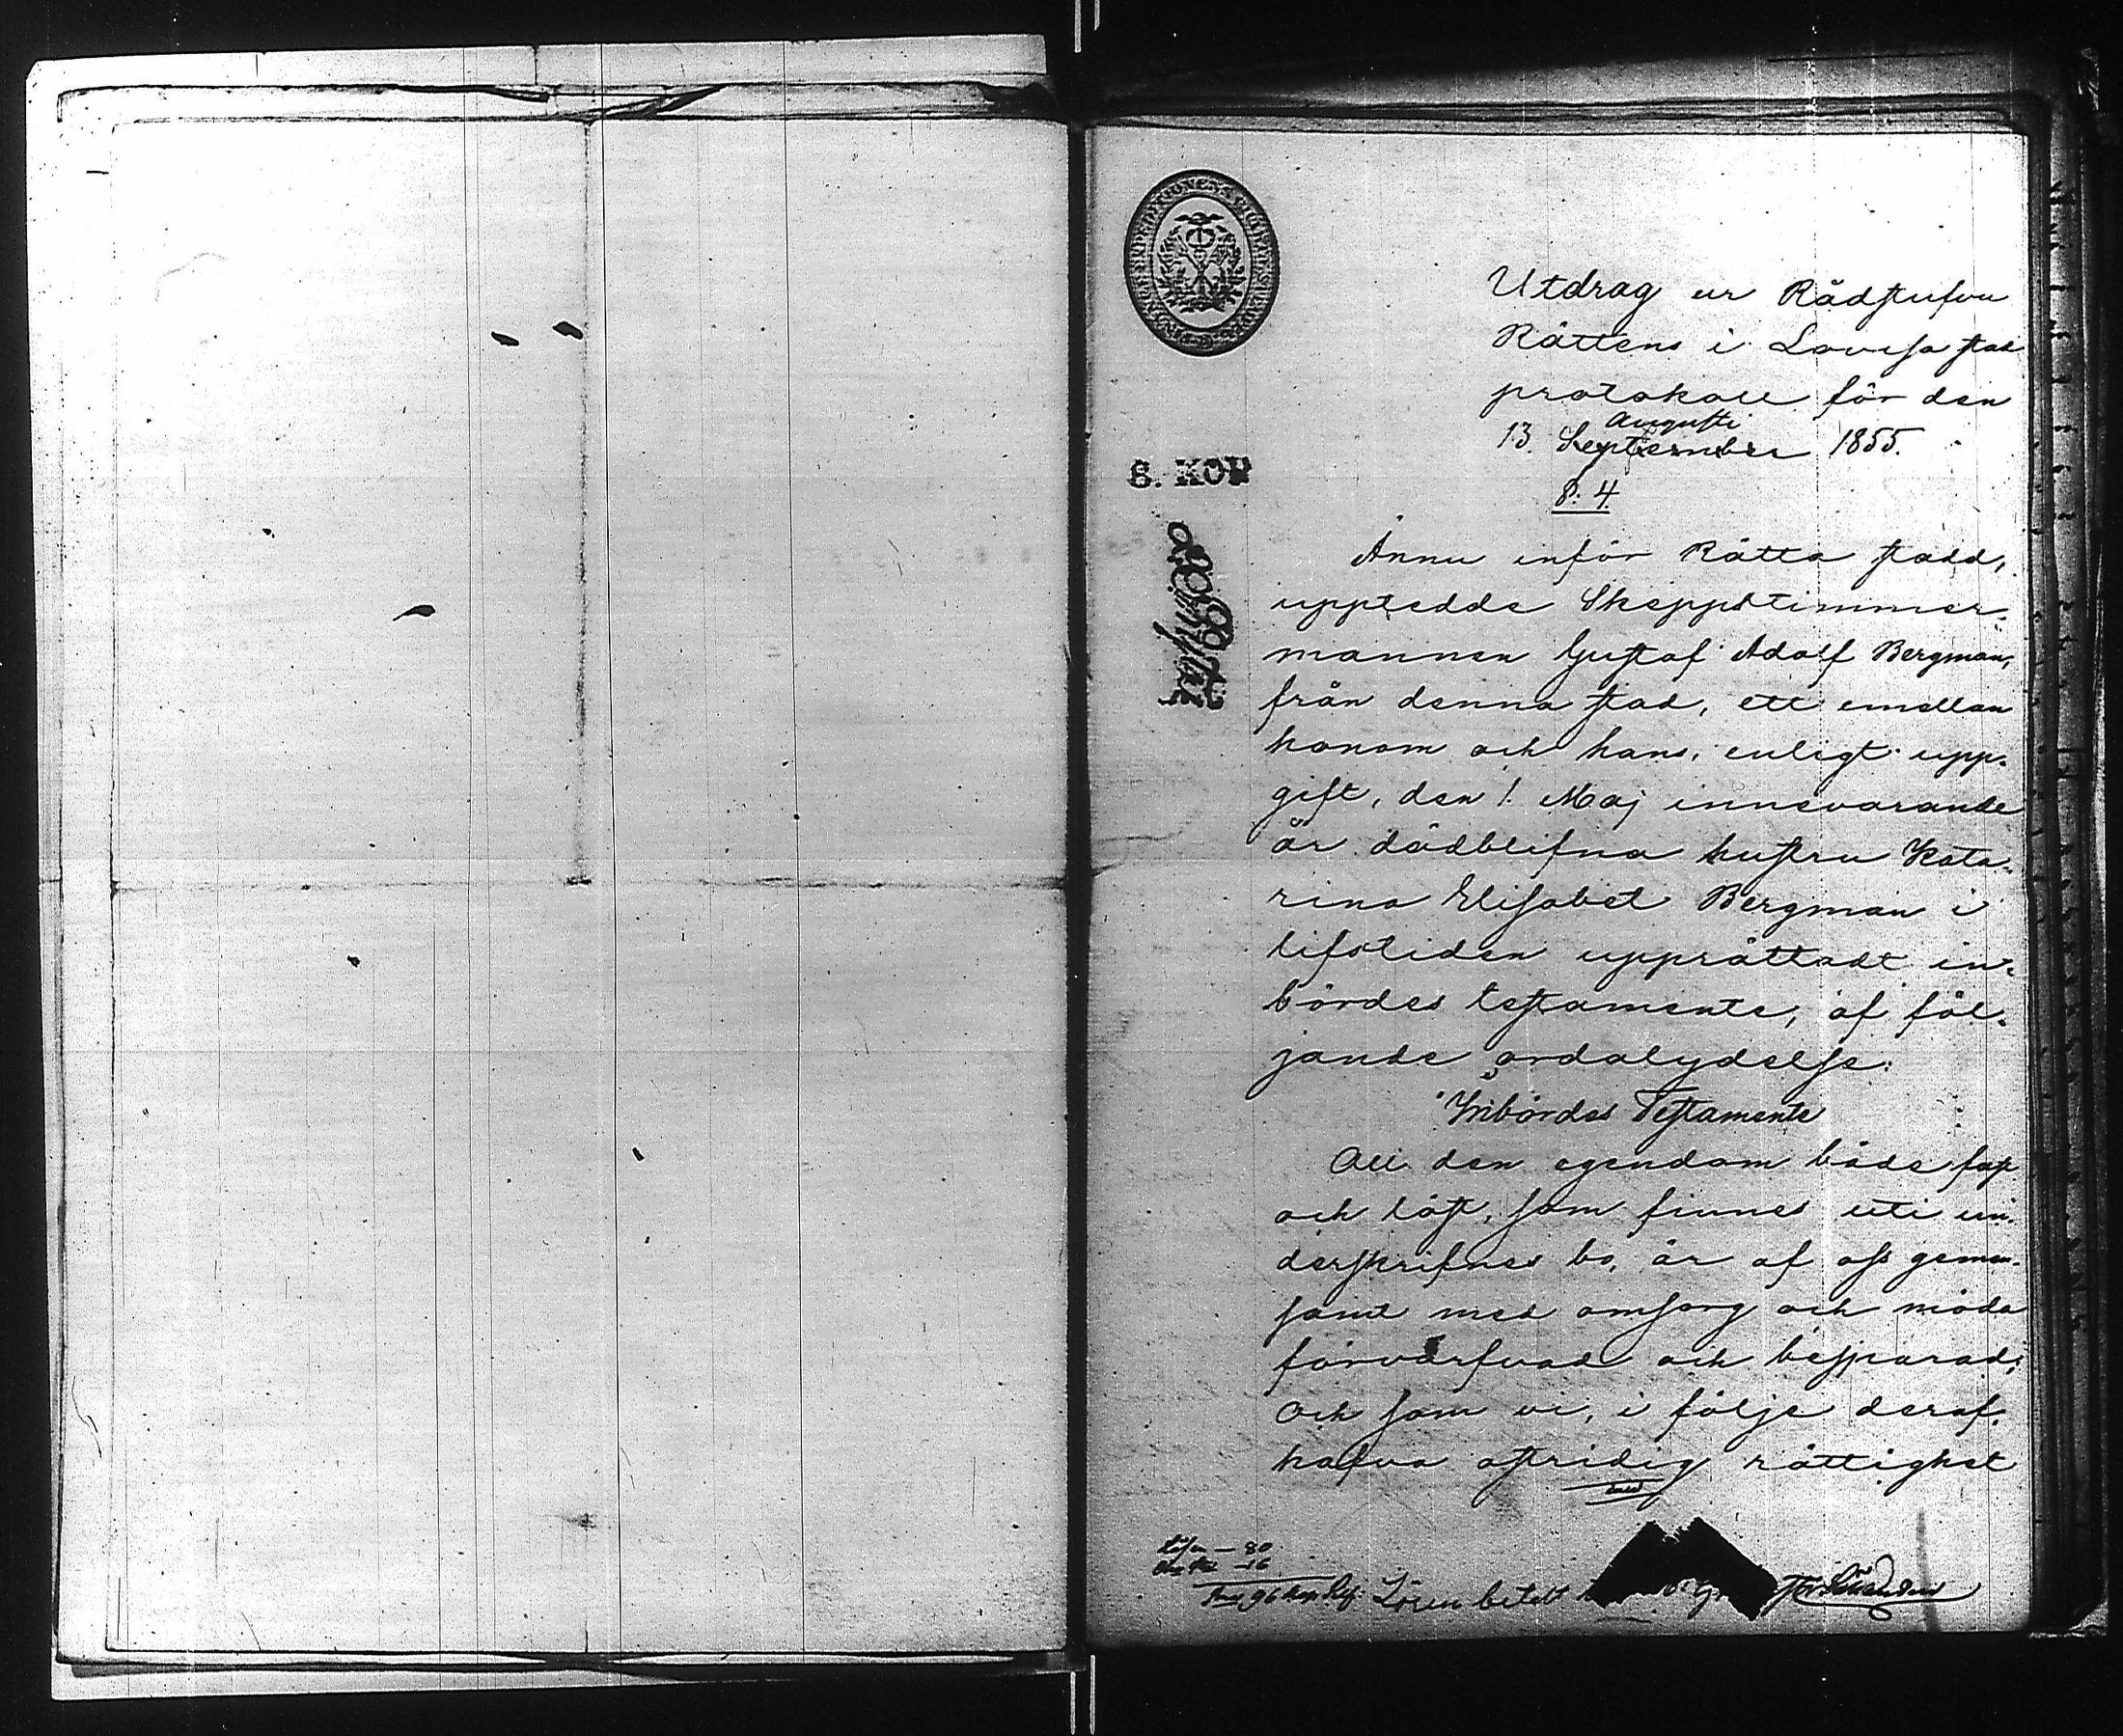 Utdrag ur Rådstufvu
Rättens i Lovisa stad
protokoll för den
Augusti
13. September 1855.
§. 4.
8. KOP
Ännu inför Rätta stadd,
uppteedde Skeppstimmer-
mannen Gustaf Adolf Bergman,
från denna stad, ett emellan
honom och hans, enligt upp-
gift, den 1. Maj innevarande
år dödblifna hustru Kata-
rina Elisabet Bergman i
lifstiden upprättadt in-
bördes testamente, af föl-
jande ordalydelse:
"Inbördes Testamente
All den egendom både fast
och löst, som finnes uti un-
derskrifnes bo, är af oss gemen-
samt med omsorg och möda
förvärfvad och besparad;
Och som vi, i följe deraf,
hafva ostridig rättighet
Lösen — 80
— 16
96 kop. Slf. Lösen betalt